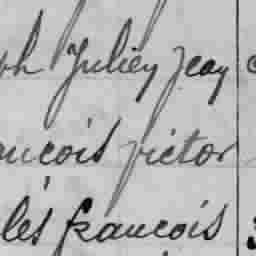 ph Julien Jean
ancois victor
les francois